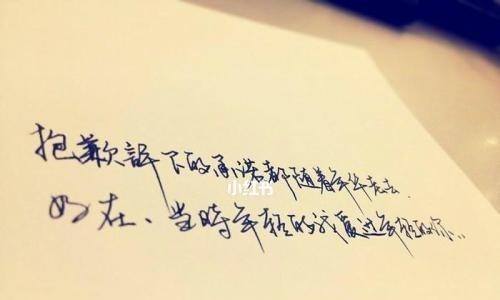 抱歉許下的承诺都随着年华老去.
好在、当时年轻的我爱过年轻的你...
小红书